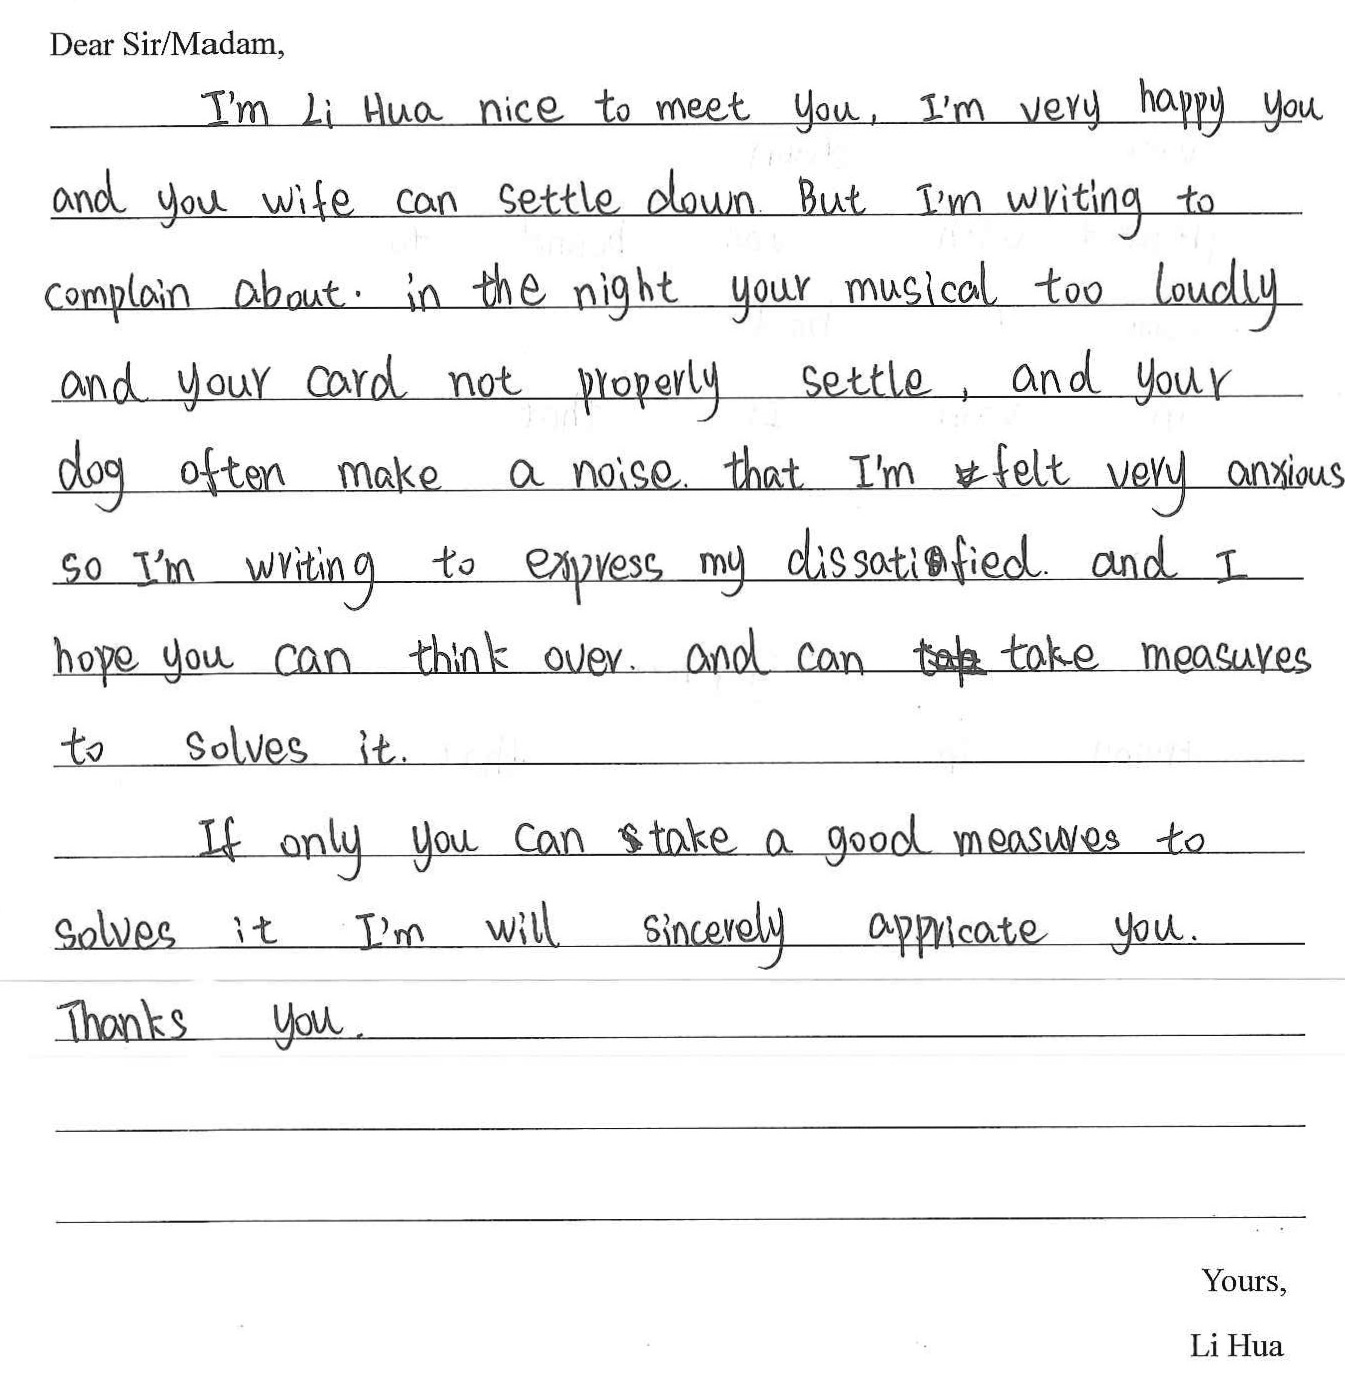 Dear Sir/Madam,
I'm Li Hua nice to meet you, I'm very happy you
and you wife can settle down. But I'm writing to
complain about. in the night your musical too loudly
and your card not properly settle, and your
dog often make a noise. that I'm felt very anxious
so I'm writing to express my dissatisfied. and I
hope you can think over. and can take measures
to solves it.
If only you can take a good measures to
solves it I'm will sincerely appricate you.
Thanks you.
Yours,
Li Hua